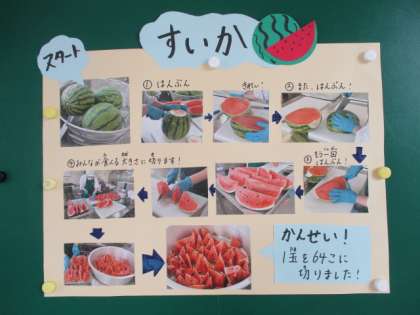 すいか
スタート
① はんぶん
きれい!
② また、はんぶん!
③ もう一回
はんぶん!
④ みんなが食べる大きさに切ります!
かんせい!
1玉を64こに
切りました!